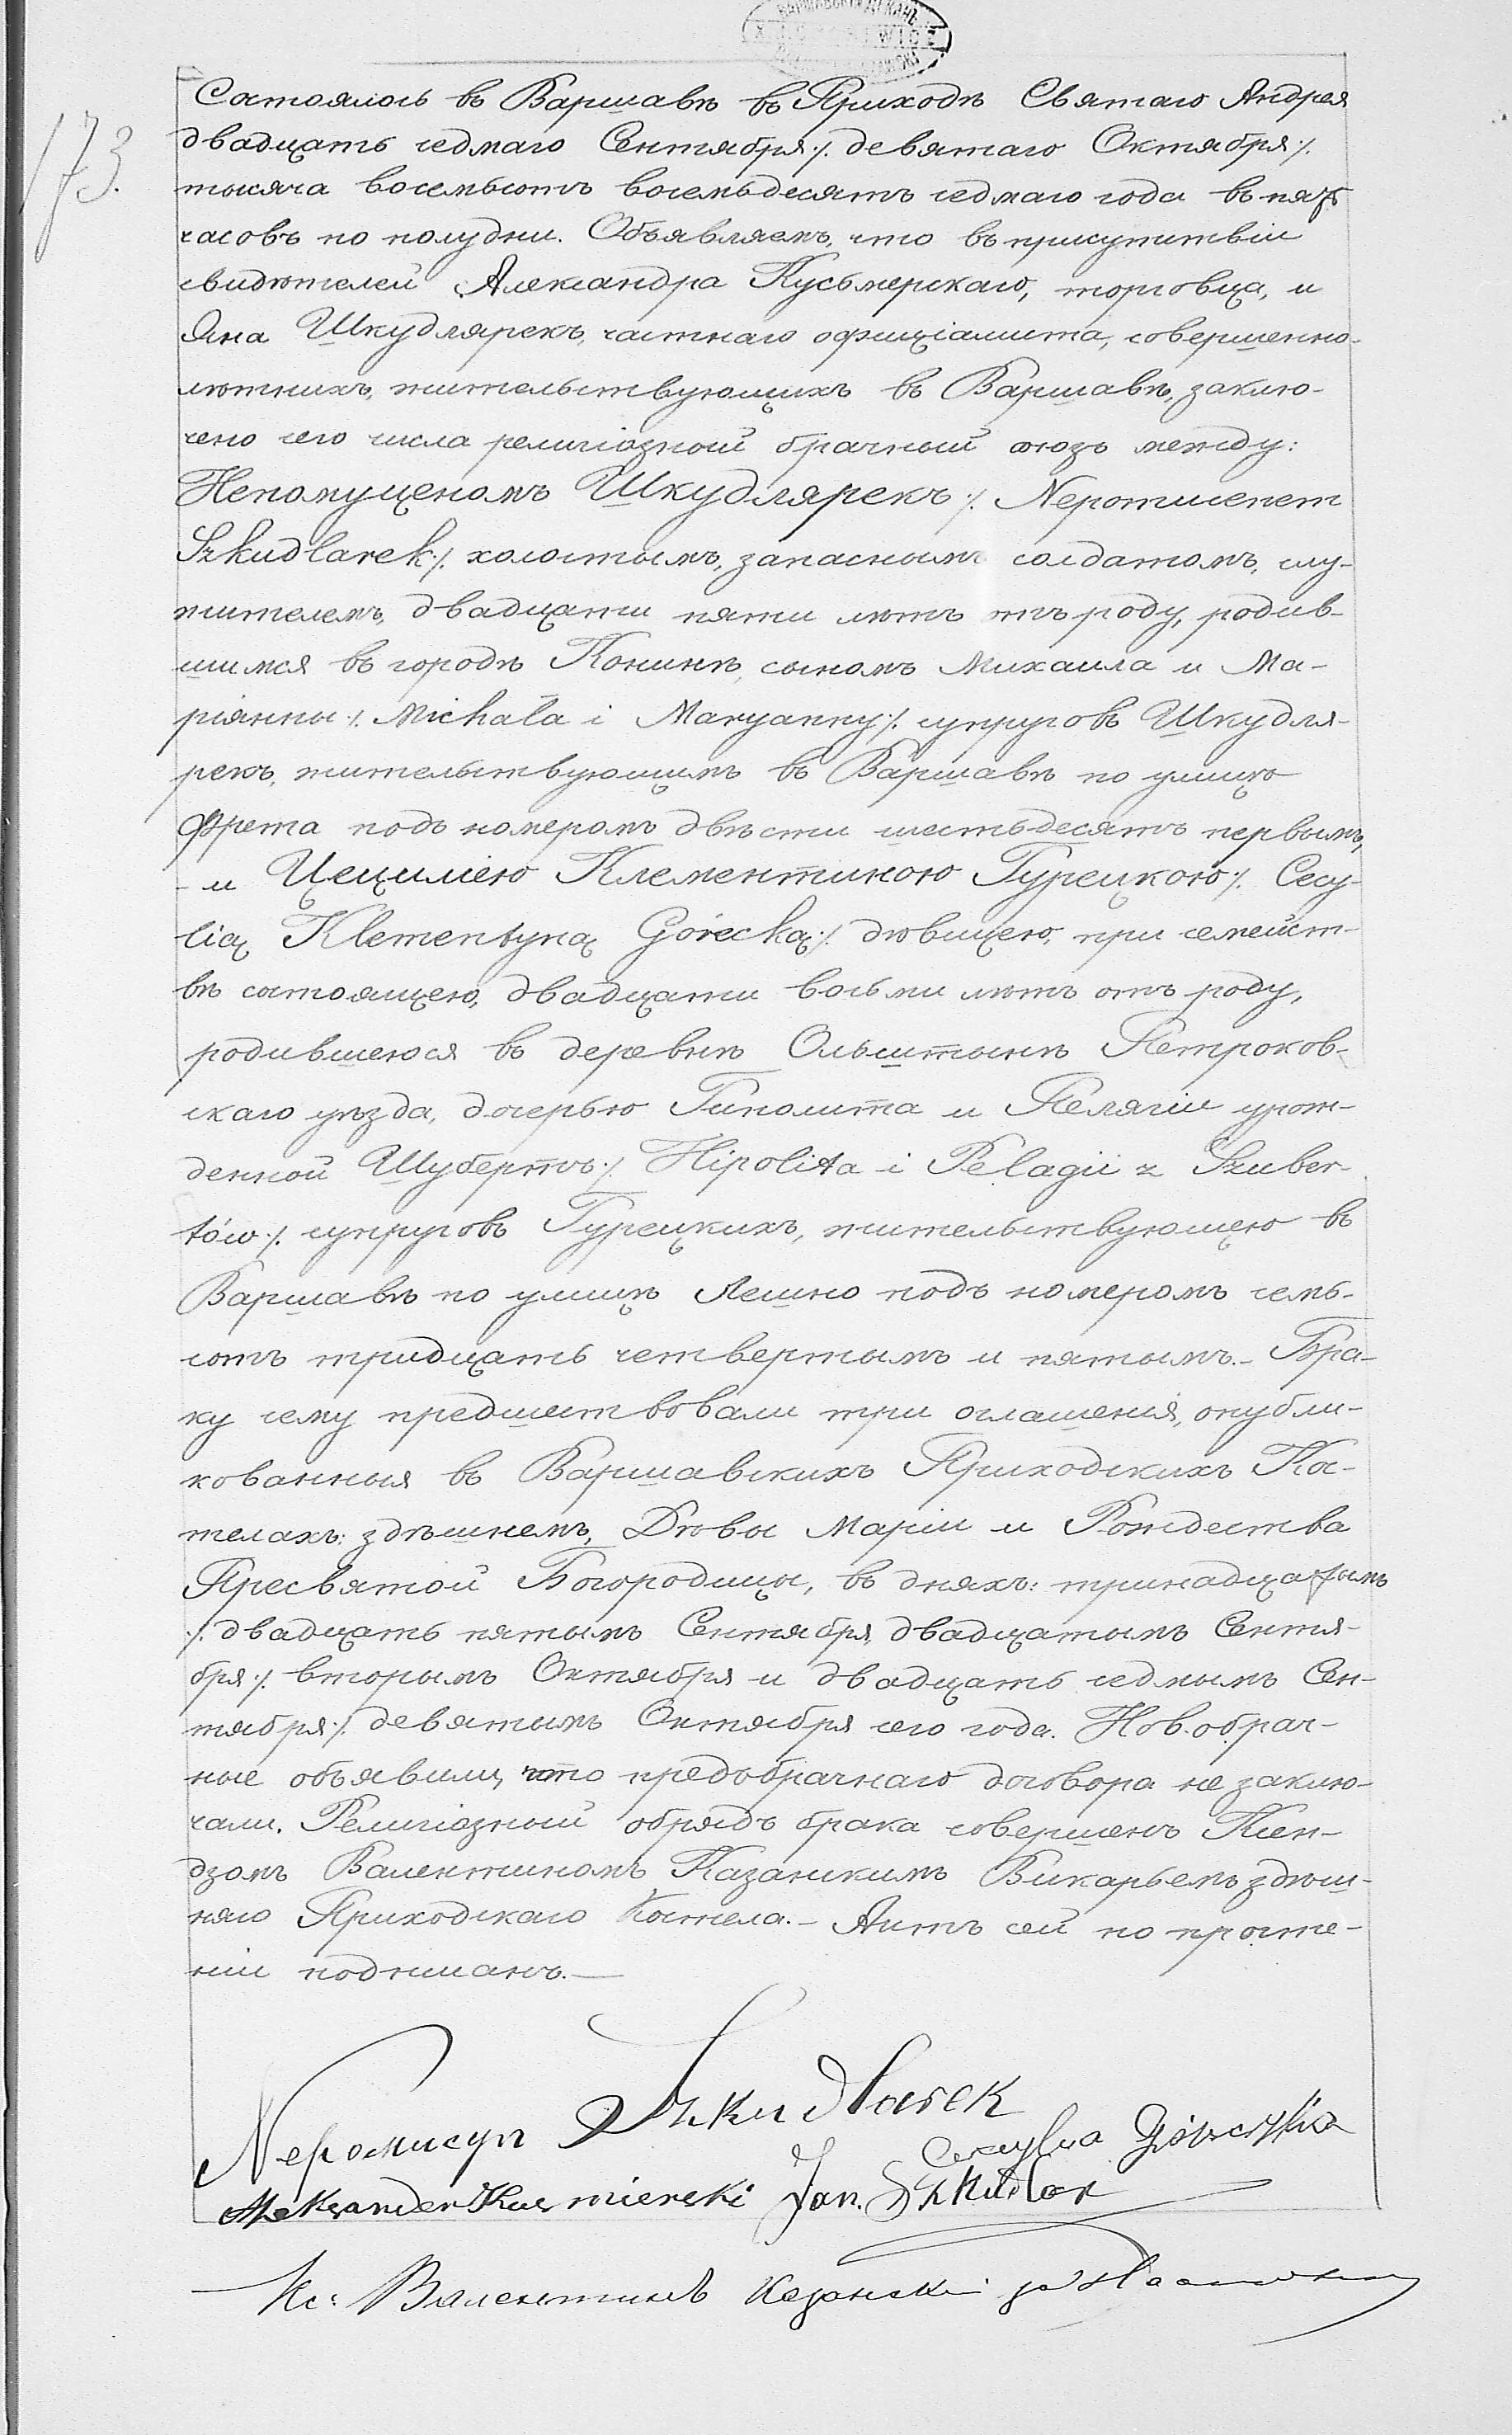 173.
Состоялось въ Варшавѣ въ Приходѣ Святаго Андрея
двадцать седмаго Сентября ./. девятаго Октября ./.
тысяча восемьсотъ восемьдесятъ седмаго года въ пять
часовъ по полудни. Объявляемъ, что въ присутствіи
свидѣтелей Александра Кусьмерскаго, торговца, и
Яна Шкудлярекъ, частнаго оффиціалиста, совершенно-
лѣтнихъ, жительствующихъ въ Варшавѣ, заклю-
чено сего числа религіозный брачный союзъ между:
Непомуценомъ Шкудлярекъ ./. Nepomucenem
Szkudlarek ./. холостымъ, запаснымъ солдатомъ, слу-
жителемъ, двадцати пяти лѣтъ отъ роду, родив-
шимся въ городѣ Конинѣ, сыномъ Михаила и Ма-
ріянны ./. Michała i Maryanny ./. супруговъ Шкудля-
рекъ, жительствующимъ въ Варшавѣ по улицѣ
Фрета подъ номеромъ двѣсти шестьдесятъ первымъ,
- и Цециліею Клементиною Гурецкою ./. Cecy-
lią Klementyną Górecką ./. дѣвицею, при семейст-
вѣ состоящею, двадцати восьми лѣтъ отъ роду,
родившеюся въ деревнѣ Ольштынѣ Петроков-
скаго уѣзда, дочерью Гиполита и Пелягіи урож-
денной Шубертъ ./. Hipolita i Pelagii z Szuber-
tów ./. супруговъ Гурецкихъ, жительствующею въ
Варшавѣ по улицѣ Лешно подъ номеромъ семь-
сотъ тридцать четвертымъ и пятымъ. - Бра-
ку сему предшествовали три оглашенія, опубли-
кованныя въ Варшавскихъ Приходскихъ Кос-
телахъ: здѣшнемъ, Дѣвы Маріи и Рождества
Пресвятой Богородицы, въ дняхъ: тринадцатымъ
./. двадцать пятымъ Сентября, двадцатымъ Сентя-
бря ./. вторымъ Октября и двадцать седмымъ Сен-
тября ./. девятымъ Октября сего года. Новобрач-
ные объявили, что предъбрачнаго договора не заклю-
чали. Религіозный обрядъ брака совершенъ Ксен-
дзомъ Валентиномъ Казанскимъ Викарьемъ здѣш-
няго Приходскаго Костела. - Актъ сей по прочте-
ніи подписанъ. —
Nepomucyn Szkudlarek
Cecylia Górecka
Aleksander Kusmierski Jan. Szkudlar
Кс: Валентинъ Казанскій